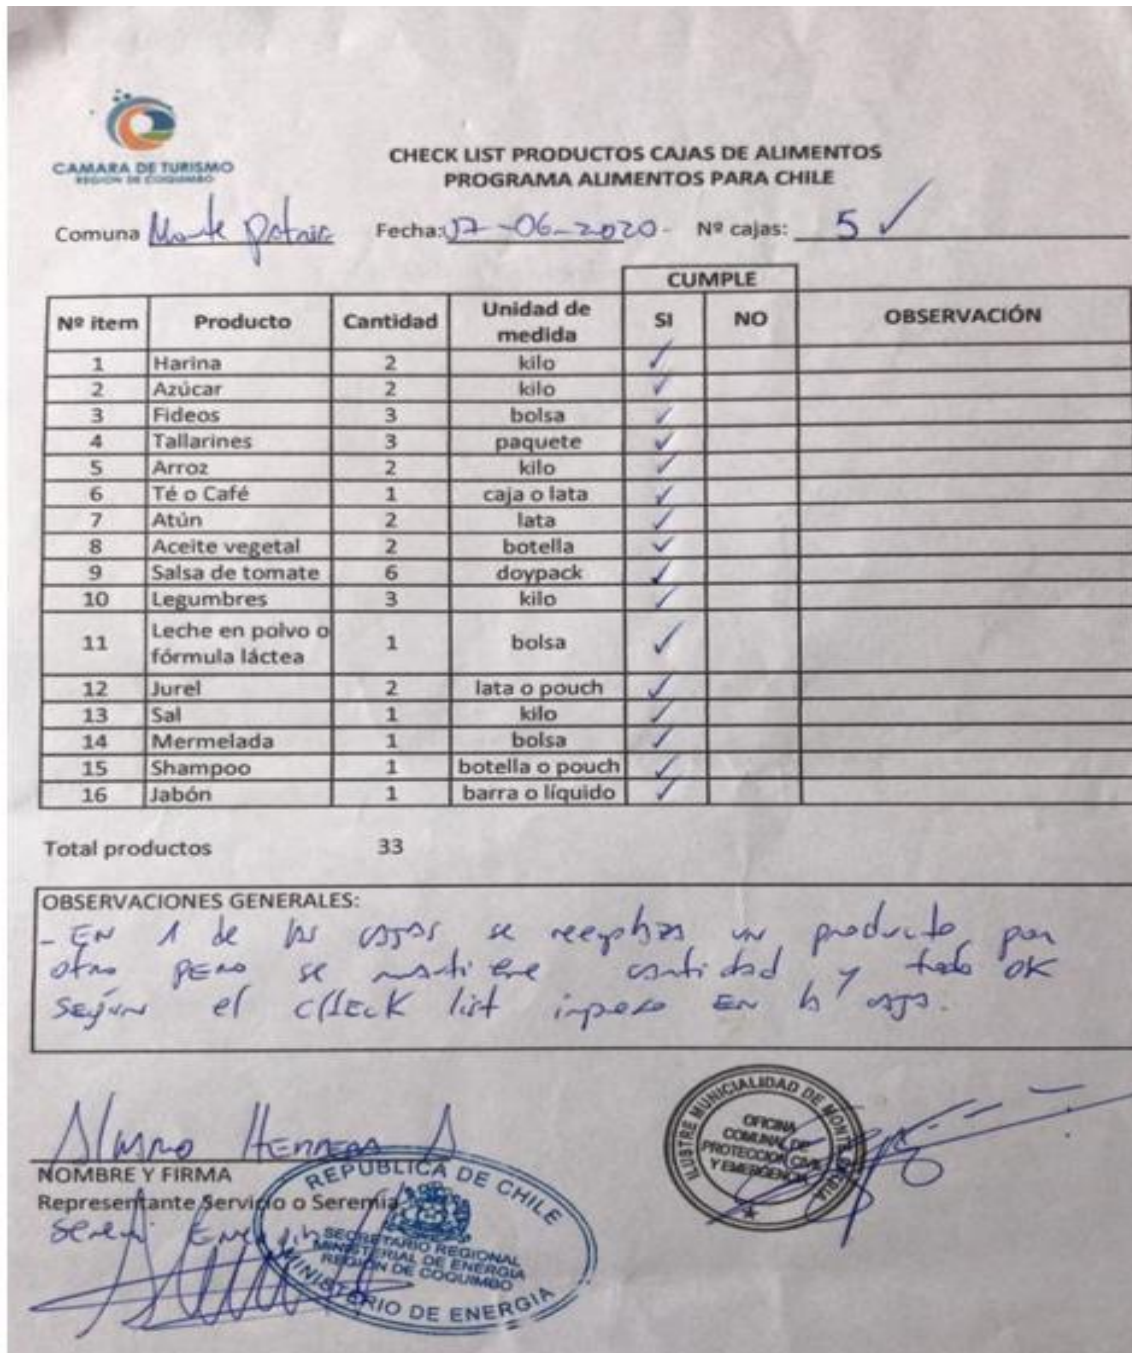 CAMARA DE TURISMO
REGION DE COQUIMBO
CHECK LIST PRODUCTOS CAJAS DE ALIMENTOS
PROGRAMA ALIMENTOS PARA CHILE
Comuna Monte Patria Fecha: 17-06-2020- Nº cajas: 5 ✓
CUMPLE
Nº item Producto Cantidad Unidad de medida SI NO OBSERVACIÓN
1 Harina 2 kilo ✓
2 Azúcar 2 kilo ✓
3 Fideos 3 bolsa ✓
4 Tallarines 3 paquete ✓
5 Arroz 2 kilo ✓
6 Té o Café 1 caja o lata ✓
7 Atún 2 lata ✓
8 Aceite vegetal 2 botella ✓
9 Salsa de tomate 6 doypack ✓
10 Legumbres 3 kilo ✓
11 Leche en polvo o fórmula láctea 1 bolsa ✓
12 Jurel 2 lata o pouch ✓
13 Sal 1 kilo ✓
14 Mermelada 1 bolsa ✓
15 Shampoo 1 botella o pouch ✓
16 Jabón 1 barra o líquido ✓
Total productos 33
OBSERVACIONES GENERALES:
- EN 1 de las cajas se reemplaza un producto por
otro pero se mantiene cantidad y todo OK
según el CHECK list impreso EN la caja.
Alvaro Herrera A
NOMBRE Y FIRMA
Representante Servicio o Seremia
Seremi Energía
REPUBLICA DE CHILE
SECRETARIO REGIONAL
MINISTERIAL DE ENERGIA
REGION DE COQUIMBO
MINISTERIO DE ENERGIA
ILUSTRE MUNICIALIDAD DE MONTE PATRIA
OFICINA
COMUNAL DE
PROTECCION CIVIL
Y EMERGENCIA